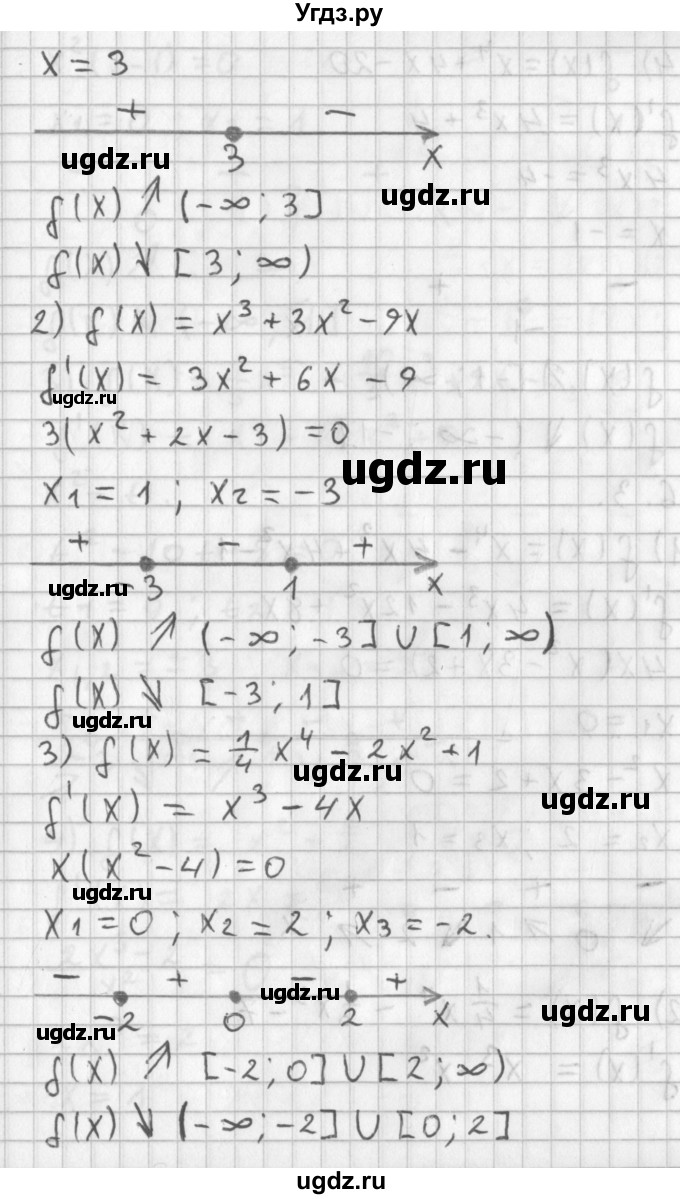 Угдз.ру
x = 3
+ −
3 x
ugdz.ru
ugdz.ru
f(x) ↗ (-∞; 3]
f(x) ↘ [3; ∞)
2) f(x) = x³ + 3x² - 9x
f'(x) = 3x² + 6x - 9
ugdz.ru
3(x² + 2x - 3) = 0
ugdz.ru
x₁ = 1; x₂ = -3
+ − +
-3 1 x
ugdz.ru
f(x) ↗ (-∞; -3] ∪ [1; ∞)
f(x) ↘ [-3; 1]
ugdz.ru
3) f(x) = 1/4 x⁴ - 2x² + 1
ugdz.ru
f'(x) = x³ - 4x
ugdz.ru
x(x² - 4) = 0
ugdz.ru
x₁ = 0; x₂ = 2; x₃ = -2.
− + − +
ugdz.ru
-2 0 2 x
ugdz.ru
ugdz.ru
f(x) ↗ [-2; 0] ∪ [2; ∞)
f(x) ↘ (-∞; -2] ∪ [0; 2]
ugdz.ru